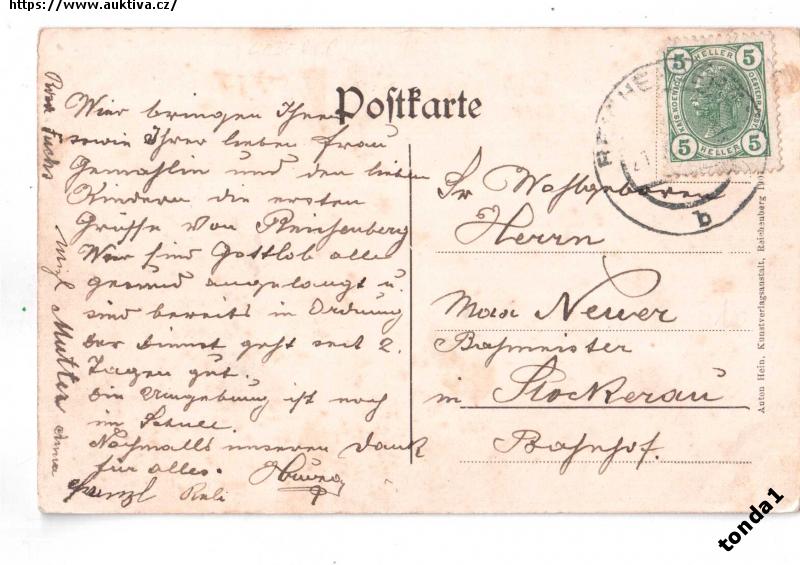 https://www.auktiva.cz/
Postkarte
Wier bringen Ihnen
sowie Ihrer lieben Frau
Gemahlin und den lieben
Kindern die ersten
Grüsse von Reichenberg
Wier sind Gottlob alle
gesund angelangt u.
sind bereits in Ordnung
Der Dienst geht seit 2.
Tagen gut.
Die Umgebung ist noch
im Schnee.
Nochmalls unseren Dank
für alles.
Franzl Resi
Rosa Fuchs
Mizl Mutter Anna
5 HELLER 5
KAIS. KOENIGL. OESTERR. POST
5 HELLER 5
b
Sr Wohlgeboren
Herrn
Max Newer
Bahmeister
in Stockerau
Bahnhof.
Anton Hein, Kunstverlagsanstalt, Reichenberg
tonda1